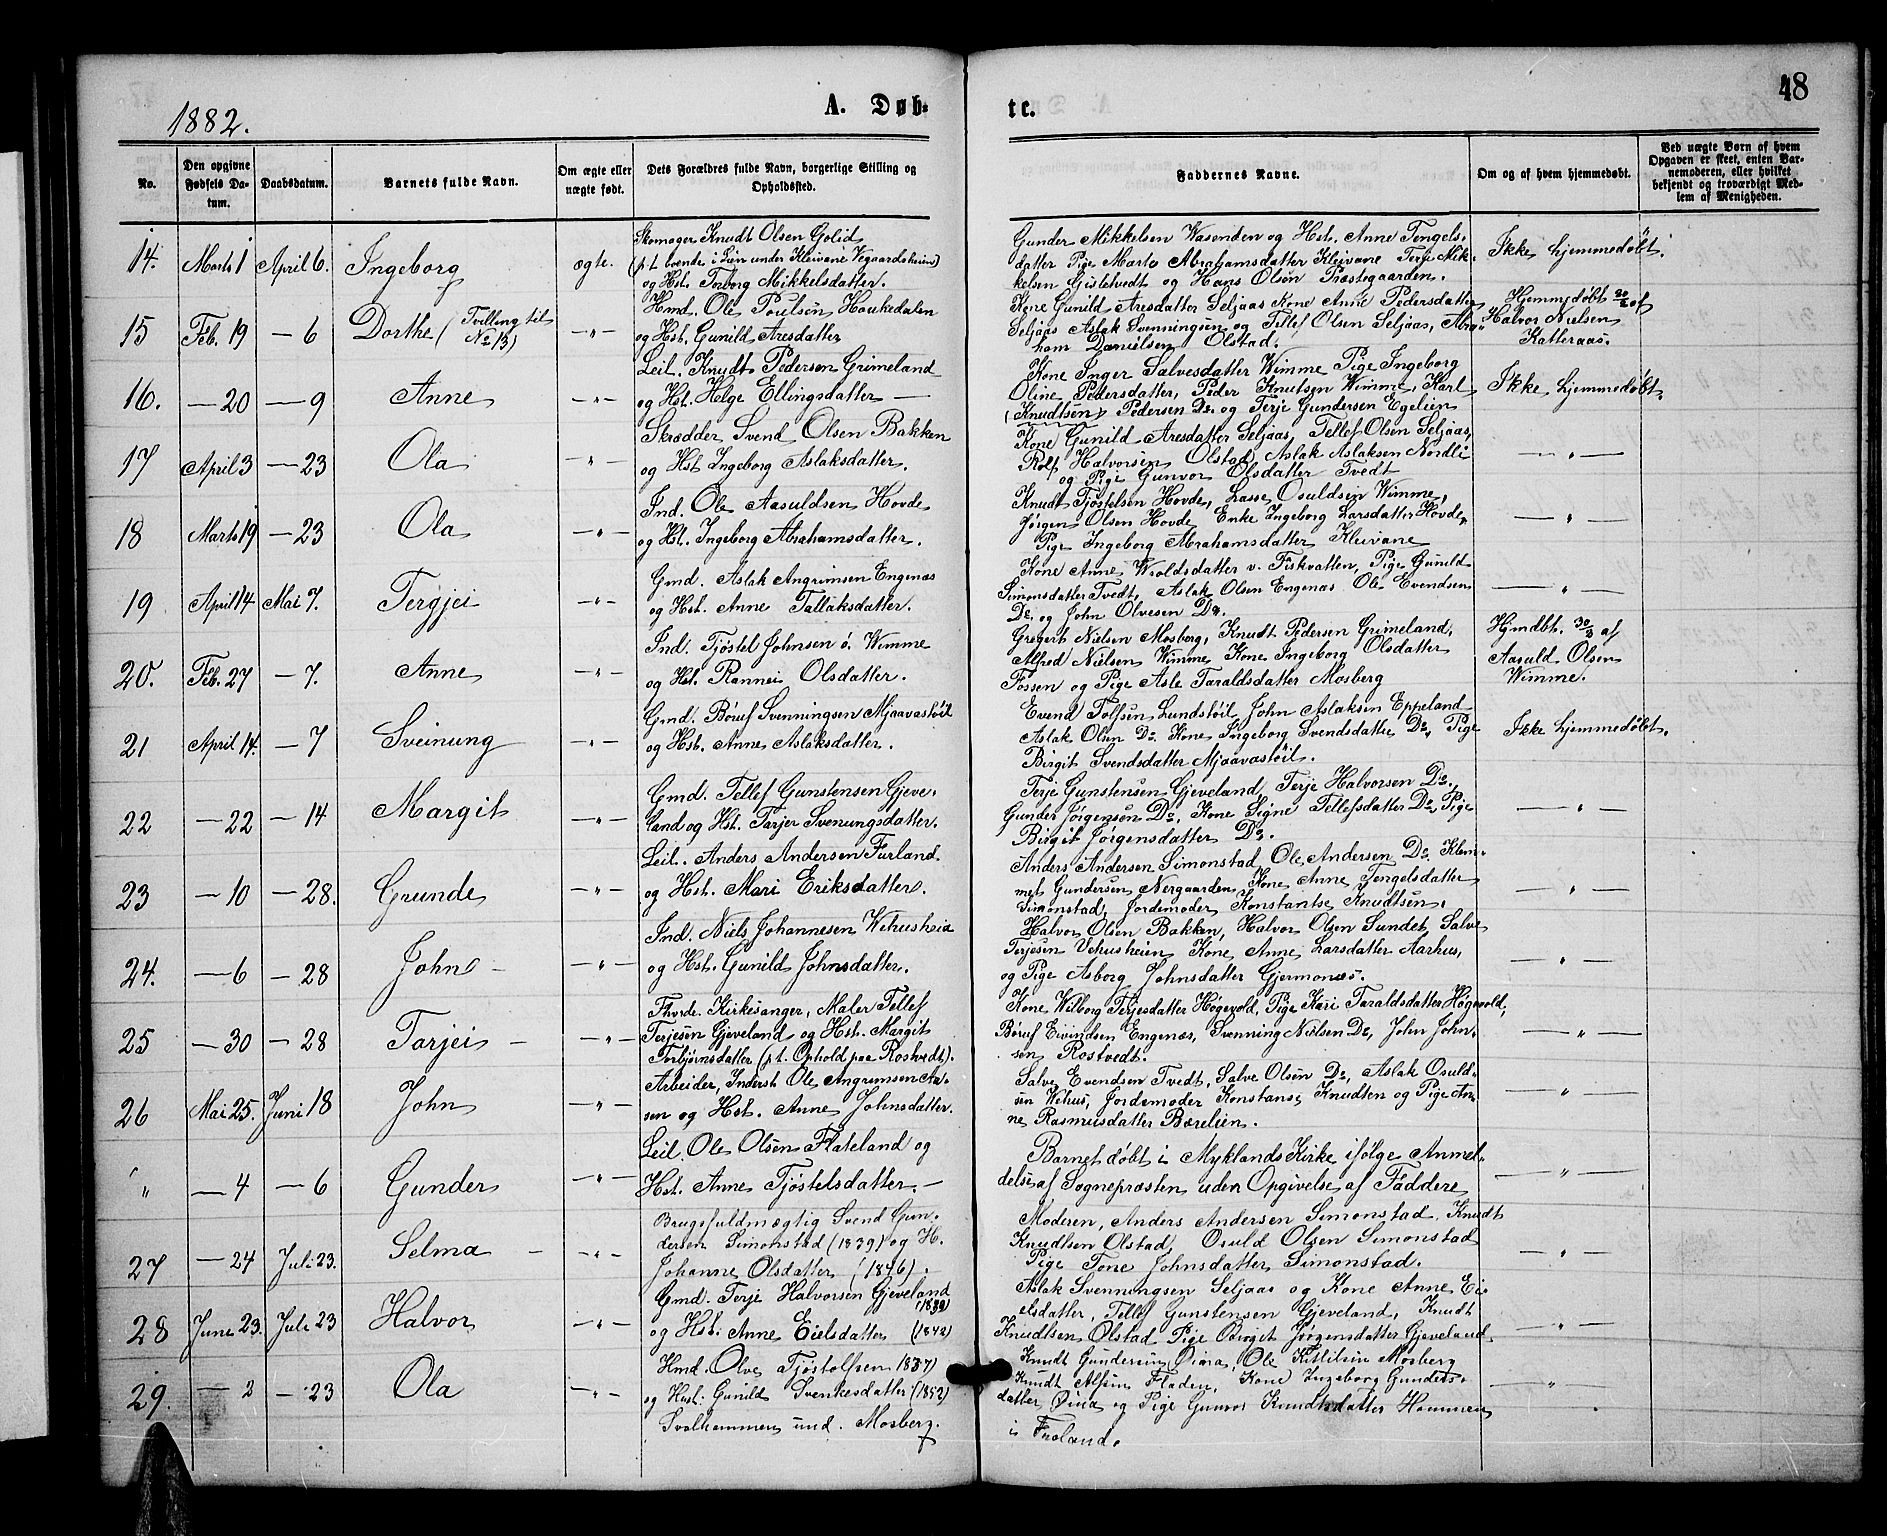 1882.
A. Døb-
te.
48
No.
Den opgivne Fødsels Da-tum.
Daabsdatum.
Barnets fulde Navn.
Om ægte eller uægte født.
Dets Forældres fulde Navn, borgerlige Stilling og Opholdssted.
Faddernes Navne.
Om og af hvem hjemmedøbt.
Ved uægte Børn af hvem Opgaven er skeet, enten Bar-nemoderen, eller hvilket bekjendt og troværdigt Med-lem af Menigheden.
14. Marts 1 April 6. Ingeborg ægte.
Skomager Knudt Olsen Golid
(p.t. boende i Lien under Kleivane Vegaardsheien)
og Hst. Torborg Mikkelsdatter.
Gunder Mikkelsen Wasenden og Hst. Anne Tengels-
datter Pige Marte Abrahamsdatter Kleivane Terje Mik-
kelsen Gusletvedt og Hans Olsen Præstegaarden.
Ikke hjemmedøbt.
15 Feb. 19 — 6 Dorthe (Tvilling til No 13) — " —
Hmd. Ole Poulsen Haukedalen
og Hst. Gunild Aresdatter
Kone Gunild Aresdatter Seljaas Kone Anne Pedersdatter
Seljaas Aslak Svenningsen og Tellef Olsen Seljaas, Abra-
ham Danielsen Olstad.
Hjemmedøbt 20/2 af
Halvor Nielsen
Katteraas.
16. — 20 — 9 Anne — " —
Leil. Knudt Pedersen Grimeland
og Hst. Helge Ellingsdatter —
Kone Inger Salvesdatter Wimme Pige Ingeborg
Oline Pedersdatter, Peder Knutsen Wimme, Karl
(Knudtsen) Pedersen Do. og Terje Gundersen Egelien
Ikke hjemmedøbt.
17 April 3 — 23 Ola — " —
Skrædder Svend Olsen Bakken
og Hst Ingeborg Aslaksdatter.
Kone Gunild Aresdatter Seljaas, Tellef Olsen Seljaas,
Rolf Halvorsen Olstad, Aslak Aslaksen Nordli
og Pige Gunvor Olsdatter Tvedt
— " —
18 Marts 19 — 23 Ola — " —
Ind. Ole Aasuldsen Hovde
og Hst. Ingeborg Abrahamsdatter.
Knudt Tjøstelsen Hovde, Lasse Osuldsen Wimme,
Jørgen Olsen Hovde Enke Ingeborg Larsdatter Hovde,
Pige Ingeborg Abrahamsdatter Kleivane
— " —
19 April 14 Mai 7. Tergjei — " —
Gmd. Aslak Angrimsen Engenæs
og Hst. Anne Tallaksdatter.
Kone Anne Wroldsdatter v. Fiskvatten, Pige Gunild
Simonsdatter Tvedt, Aslak Olsen Engenæs Ole Evendsen
Do. og John Olvesen Do.
— " —
20. Feb. 27 — 7. Anne — " —
Ind. Tjøstel Johnsen ö. Wimme
og Hst. Rannei Olsdatter.
Gregert Nielsen Mosberg, Knudt Pedersen Grimeland,
Alfred Nielsen Wimme Kone Ingeborg Olsdatter
Fossen og Pige Asle Taraldsdatter Mosberg
Hjmdbt. 30/3 af
Aasuld Olsen
Wimme.
21 April 14. — 7 Sveinung — " —
Gmd. Børuf Svenningsen Mjaavastøil
og Hst. Anne Aslaksdatter.
Evend Tolfsen Lundstøil, John Aslaksen Eppeland
Aslak Olsen Do. Kone Ingeborg Svendsdatter Do, Pige
Birgit Svendsdatter Mjaavastøil.
Ikke hjemmedøbt.
22 — 22 — 14 Margit — " —
Gmd. Tellef Gunstensen Gjeve-
land og Hst. Tarjer Svenungsdatter.
Terje Gunstensen Gjeveland, Terje Halvorsen Do.,
Gunder Jørgensen Do., Kone Signe Tellefsdatter Do., Pige
Birgit Jørgensdatter Do.
— " —
23 — 10 — 28. Grunde — " —
Leil. Anders Andersen Furland.
og Hst. Mari Eriksdatter.
Anders Andersen Simonstad, Ole Andersen Do. Klem-
met Gundersen Nergaarden, Kone Anne Tengelsdatter
Simonstad, Jordemoder Konstantse Knudtsen.
— " —
24. — 6 — 28 John — " —
Ind. Niels Johannesen Wehusheia
og Hst. Gunild Johnsdatter.
Halvor Olsen Bakken, Halvor Olsen Sundet, Salve
Terjesen Vehusheien Kone Anne Larsdatter Aarhus,
og Pige Asborg Johnsdatter Gjermonæs.
— " —
25 — 30 — 28 Tarjei — " —
Fhvde. Kirkesanger, Maler Tellef
Terjesen Gjeveland og Hst. Margit
Torbjørnsdatter (p.t. Ophold paa Rostvedt).
Kone Wilborg Terjesdatter Høgevold, Pige Kari Taraldsdatter Høgevold,
Børuf Eivindsen Engenæs, Svenning Nielsen Do, John John-
sen Rostvedt.
— " —
26 Mai 25. Juni 18 John — " —
Arbeider, Inderst Ole Angrimsen Aa-
sen og Hst. Anne Johnsdatter.
Salve Evendsen Tvedt, Salve Olsen Do, Aslak Osuld-
sen Wehus, Jordemoder Konstanse Knudtsen og Pige An-
ne Rasmusdatter Bærelien.
— " —
" — 4 — 6 Gunder — " —
Leil. Ole Olsen Flateland og
Hst. Anne Tjøstelsdatter. —
Barnet døbt i Myklands Kirke ifølge Anmel-
delse af Sognepræsten uden Opgivelse af Faddere
— " —
27 — 24 Juli 23. Selma — " —
Brugsfuldmægtig Svend Gun-
dersen Simonstad (1839) og H.
Johanne Olsdatter (1846).
Moderen, Anders Andersen Simonstad, Knudt
Knudtsen Olstad, Osuld Olsen Simonstad
Pige Tone Johnsdatter Simonstad.
— " —
28 June 23. Juli 23 Halvor — " —
Gmd. Terje Halvorsen Gjeveland
og Hst. Anne Eielsdatter (1842)
Aslak Svenningsen Seljaas og Kone Anne Ei-
elsdatter, Tellef Gunstensen Gjeveland, Knudt
Knudtsen Olstad Pige Birget Jørgensdatter Gjeveland.
— " —
29. — 2 — 23 Ola — " —
Hmd. Olve Tjøstolfsen 1837)
og Hst. Gunild Svenkesdatter (1852)
Svalhammen und. Mosberg.
Knudt Gundersen Øina, Ole Kittilsen Mosberg
Knudt Alfsen Fladen, Kone Ingeborg Gunders-
datter Øina og Pige Gunvor Knudtsdatter Hommen
i Froland.
— " —